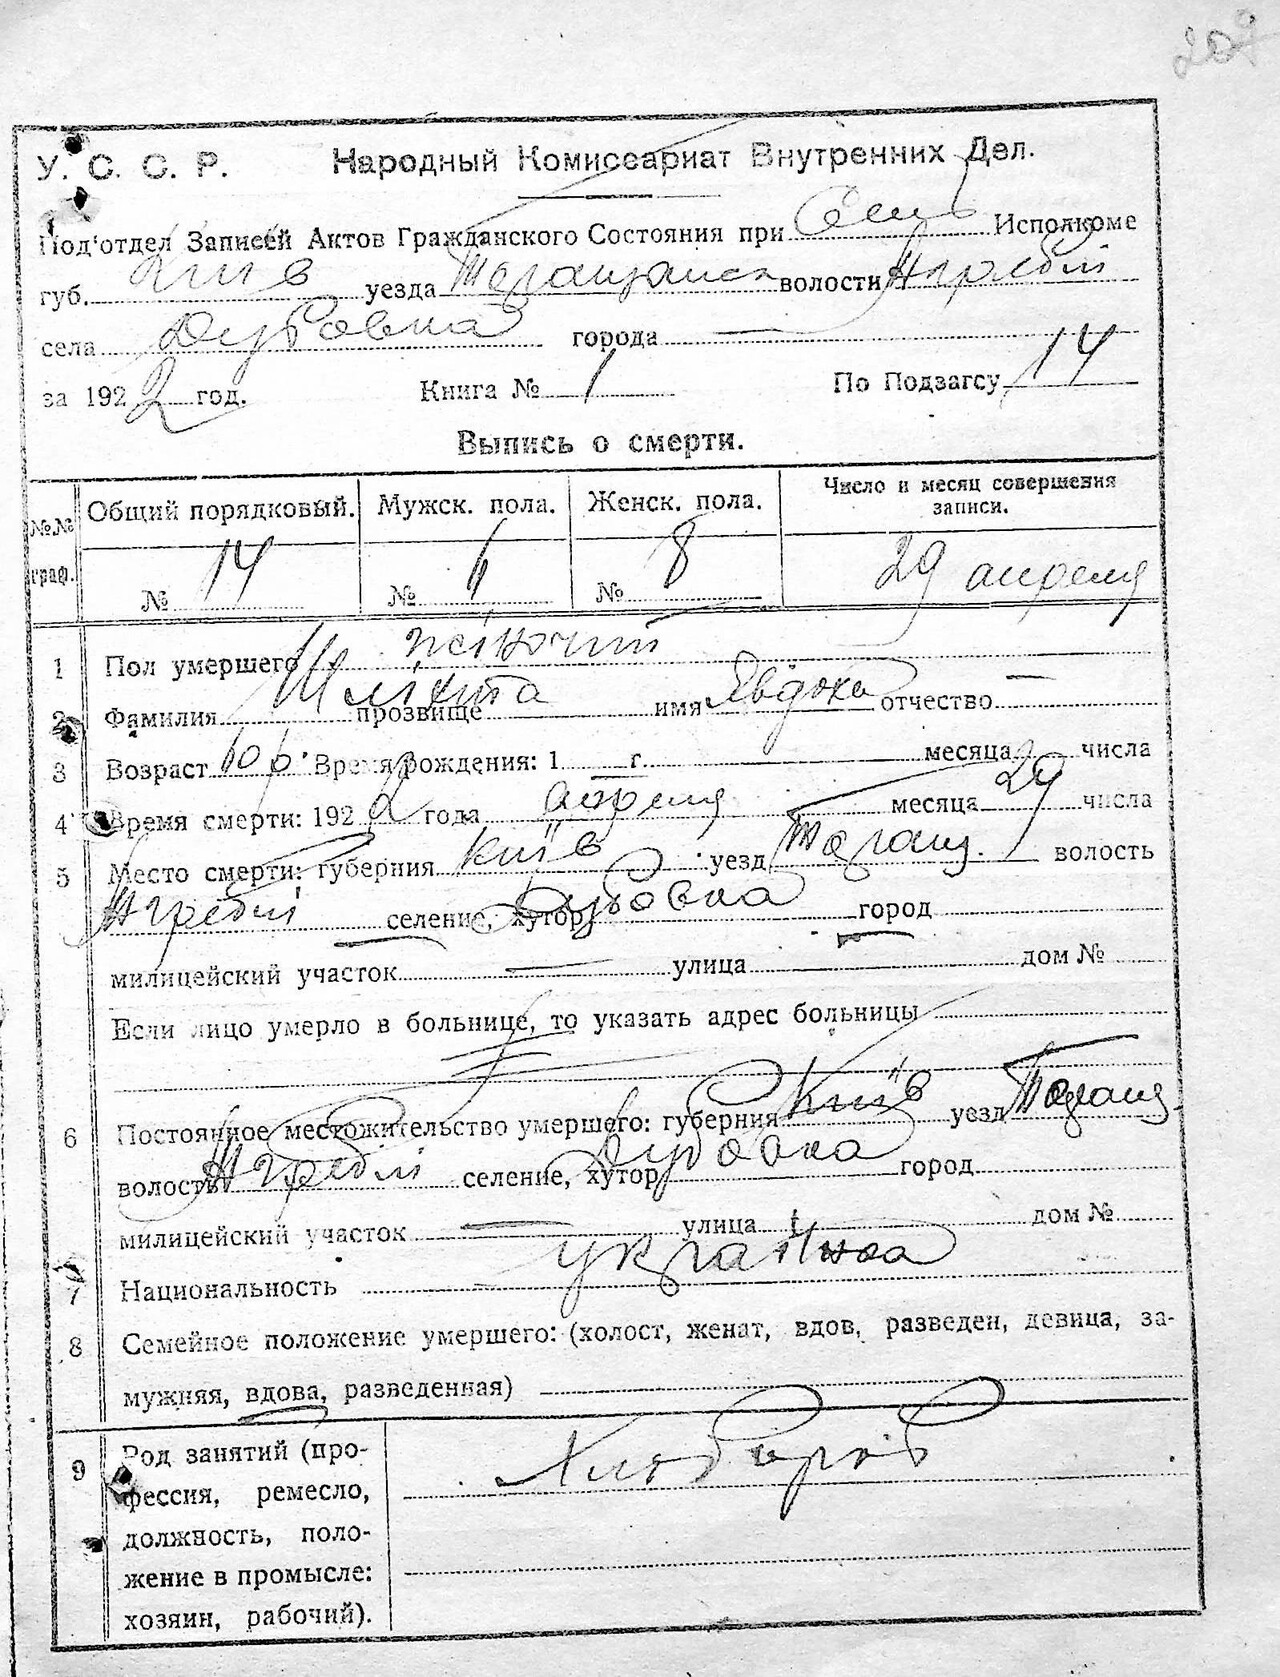 209
У. С. С. Р. Народный Комиссариат Внутренних Дел.
Под'отдел Записей Актов Гражданского Состояния при Исполкоме
губ. Київ уезда волости
села Дубовка города —
за 1922 год. Книга № 1 По Подзагсу 14
Выпись о смерти.
№№ граф. Общий порядковый. Мужск. пола. Женск. пола. Число и месяц совершения записи.
№ 14 № 6 № 8 29 апреля
1 Пол умершего жіночий
2 Фамилия прозвище имя Явдоха отчество —
3 Возраст 60 р. Время рождения: 1 — г. месяца числа
4 Время смерти: 1922 года апреля месяца 29 числа
5 Место смерти: губерния Київ уезд Таращ. волость
селение, хутор Дубовка город
милицейский участок — улица — дом №
Если лицо умерло в больнице, то указать адрес больницы
6 Постоянное местожительство умершего: губерния Київ уезд Таращ
волость селение, хутор Дубовка город
милицейский участок — улица дом №
7 Национальность українка
8 Семейное положение умершего: (холост, женат, вдов, разведен, девица, за-
мужняя, вдова, разведенная)
9 Род занятий (про-
фессия, ремесло,
должность, поло-
жение в промысле:
хозяин, рабочий).
Хлібороб